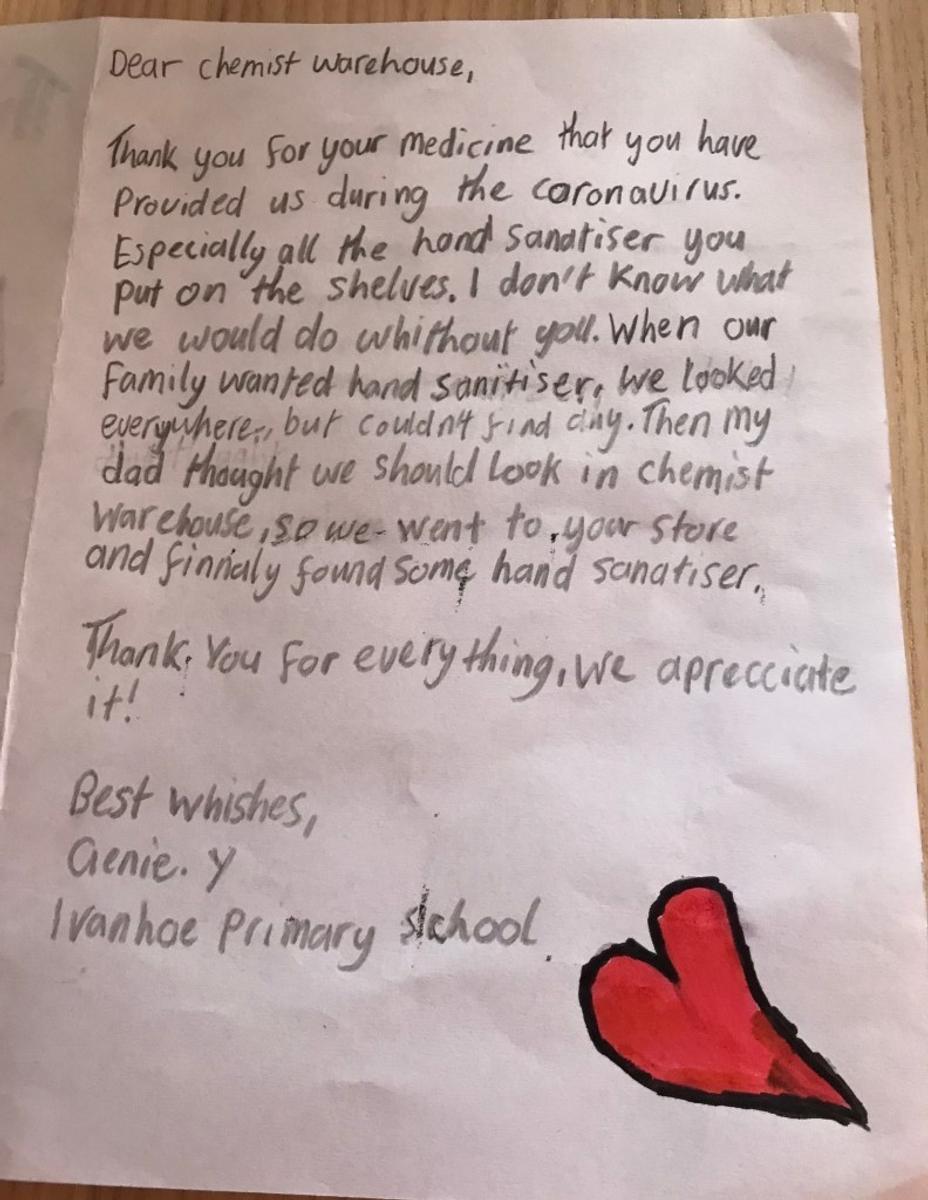 Dear chemist warehouse,
Thank you for your medicine that you have
Provided us during the coronavirus.
Especially all the hand sanatiser you
put on the shelves. I don't know what
we would do whithout you. When our
family wanted hand sanitiser, we looked
everywhere, but couldn't find any. Then my
dad thought we should look in chemist
Warehouse, so we went to your store
and finnialy found some hand sanatiser.
Thank You for everything, we aprecciate
it!
Best whishes,
Genie. Y
Ivanhoe Primary School.